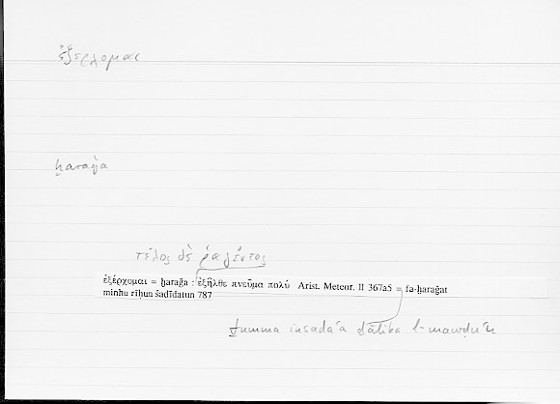 ἐξέρχομαι
ḫaraǧa
τέλος δὲ ῥαγέντος
ἐξέρχομαι = ḫaraǧa : ἐξῆλθε πνεῦμα πολύ Arist. Meteor. II 367a5 = fa-ḫaraǧat
minhu rīḥun šadīdatun 787
ṯumma inṣadaʿa ḏālika l-mawḍiʿu